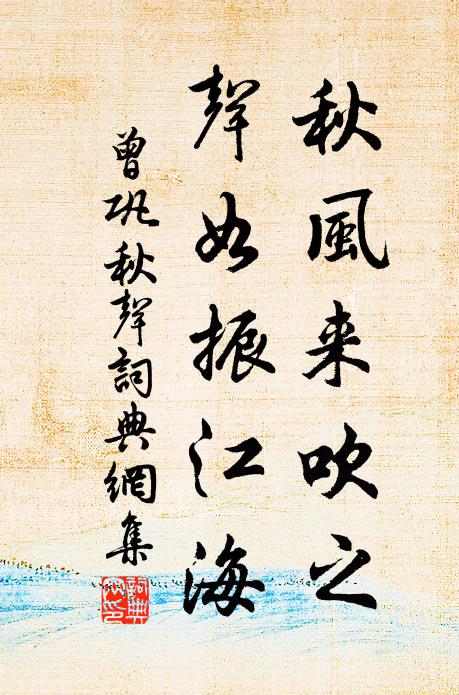 秋風来吹之
聲如振江海
曾巩秋聲詞典網集